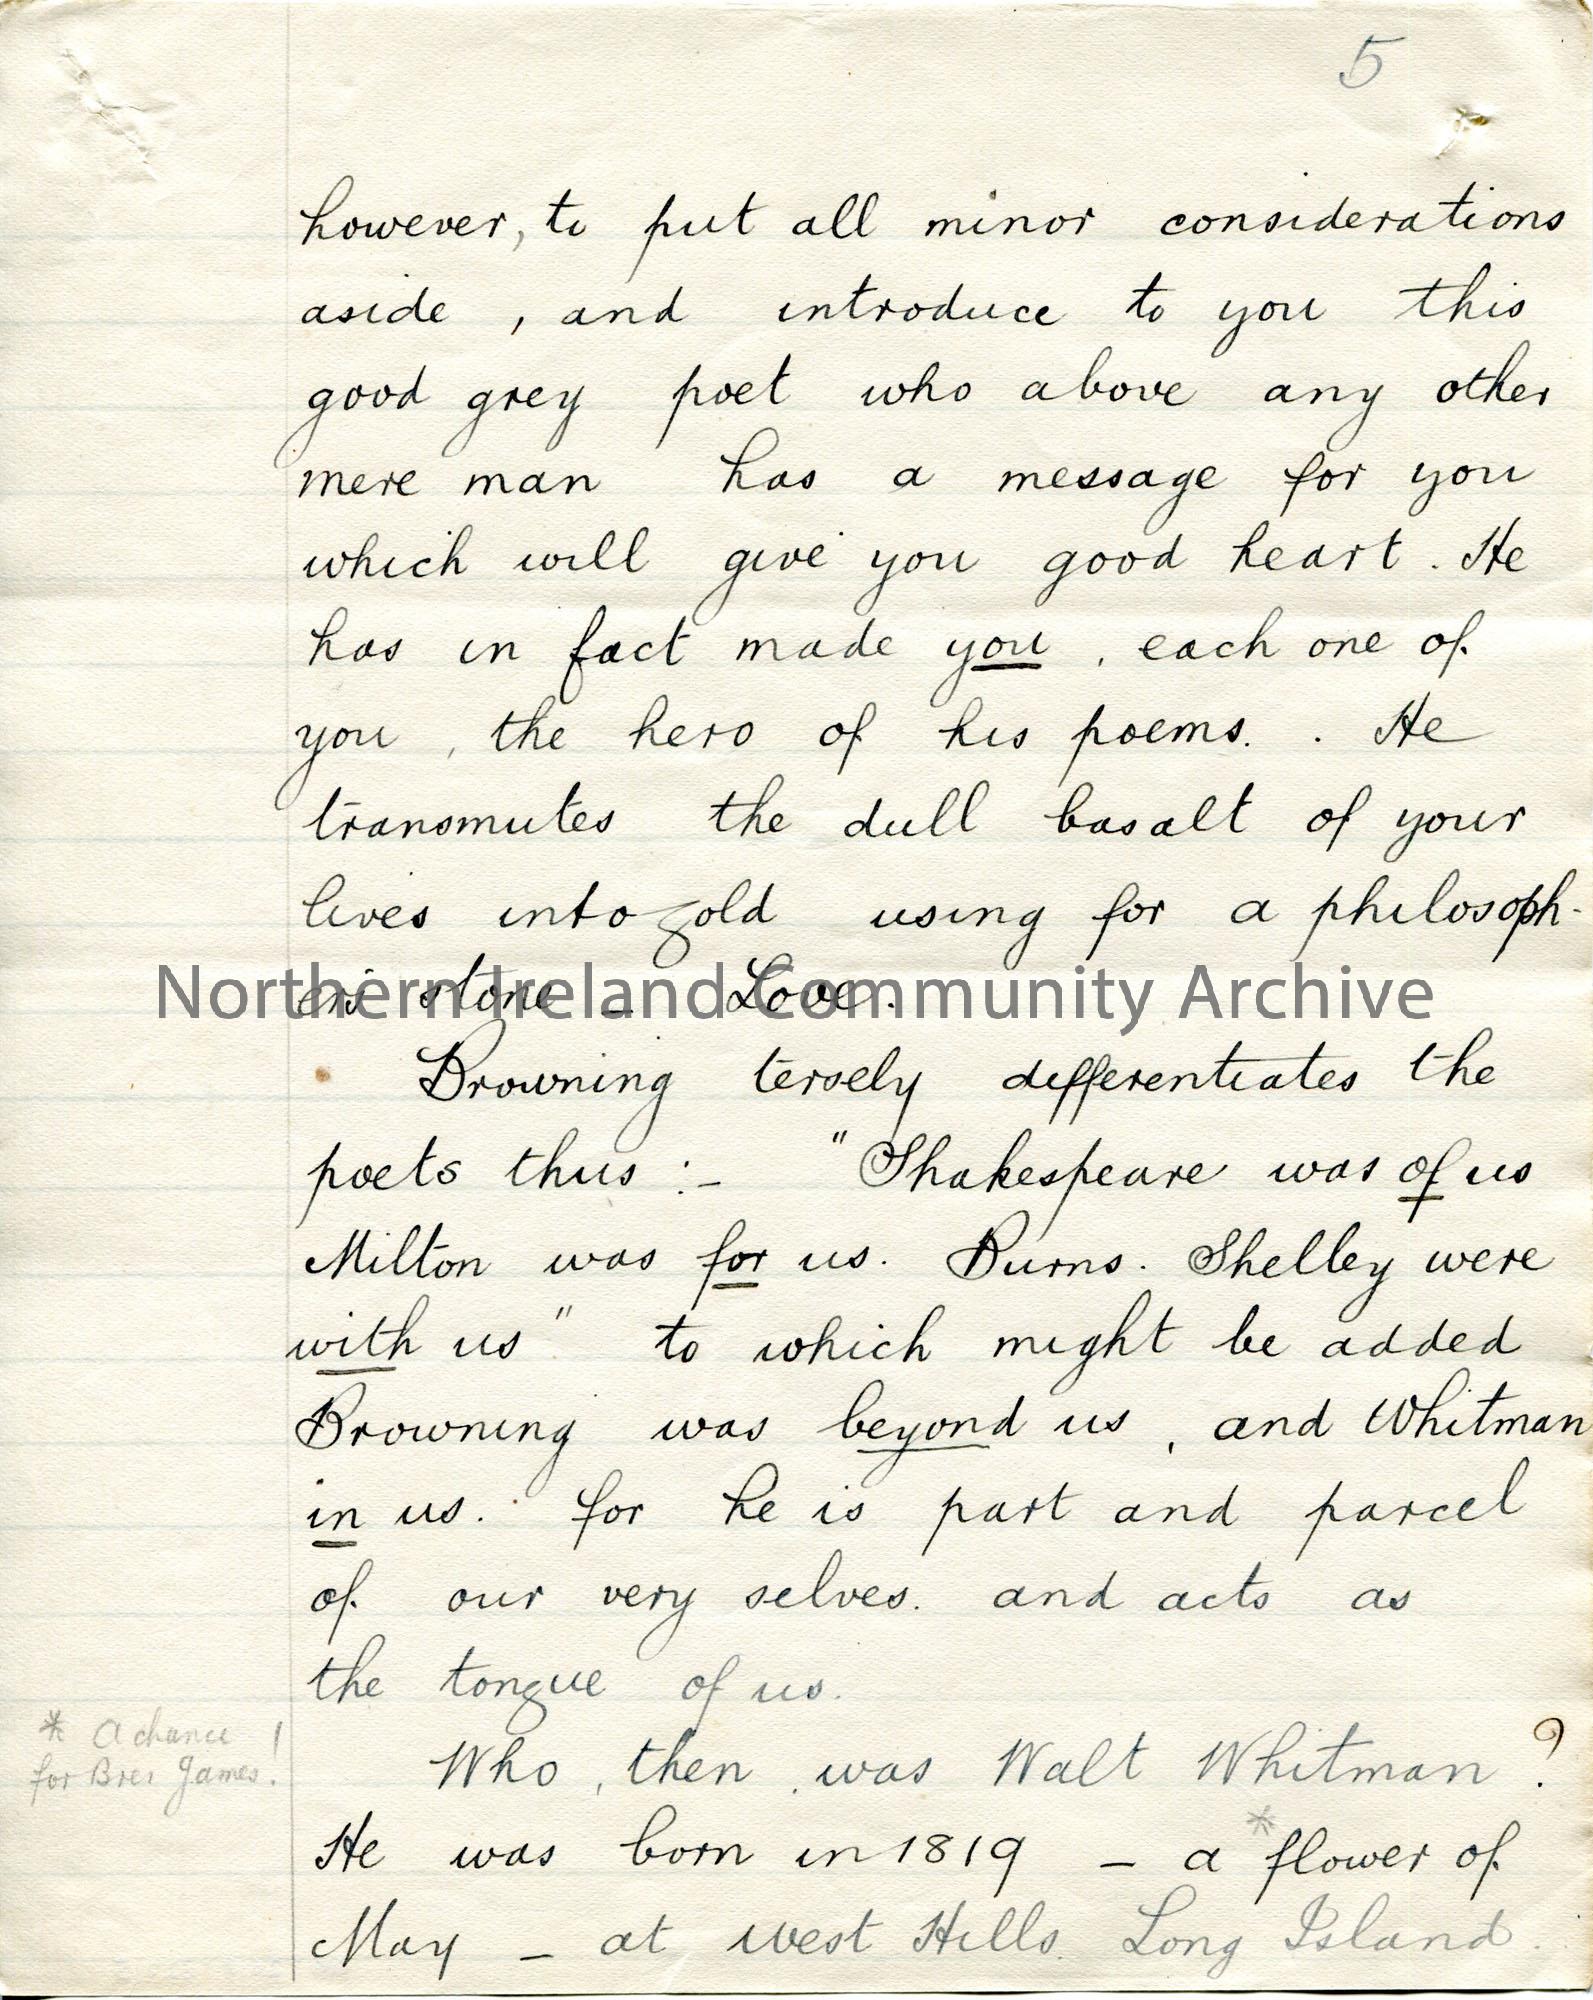 5
however, to put all minor considerations
aside, and introduce to you this
good grey poet who above any other
mere man has a message for you
which will give you good heart. He
has in fact made you, each one of
you, the hero of his poems. . He
transmutes the dull basalt of your
lives into gold using for a philosoph-
ers stone _ Love.
Northern Ireland Community Archive
Browning tersely differentiates the
poets thus :- "Shakespeare was of us
Milton was for us. Burns. Shelley were
with us" to which might be added
Browning was beyond us, and Whitman
in us. for he is part and parcel
of our very selves. and acts as
the tongue of us.
* A chance !
for Brer James!
Who, then, was Walt Whitman ?
He was born in 1819 – a *flower of
May – at West Hills. Long Island.